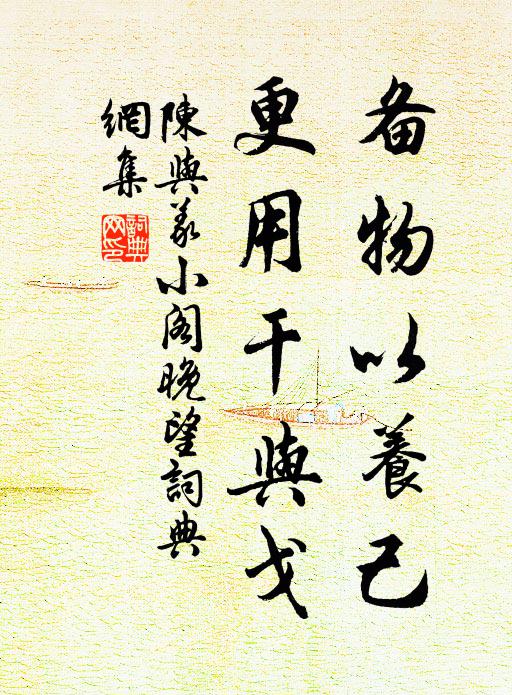 备物以養己
更用干與戈
陳與義小阁晚望詞典
網集
詞典
网印